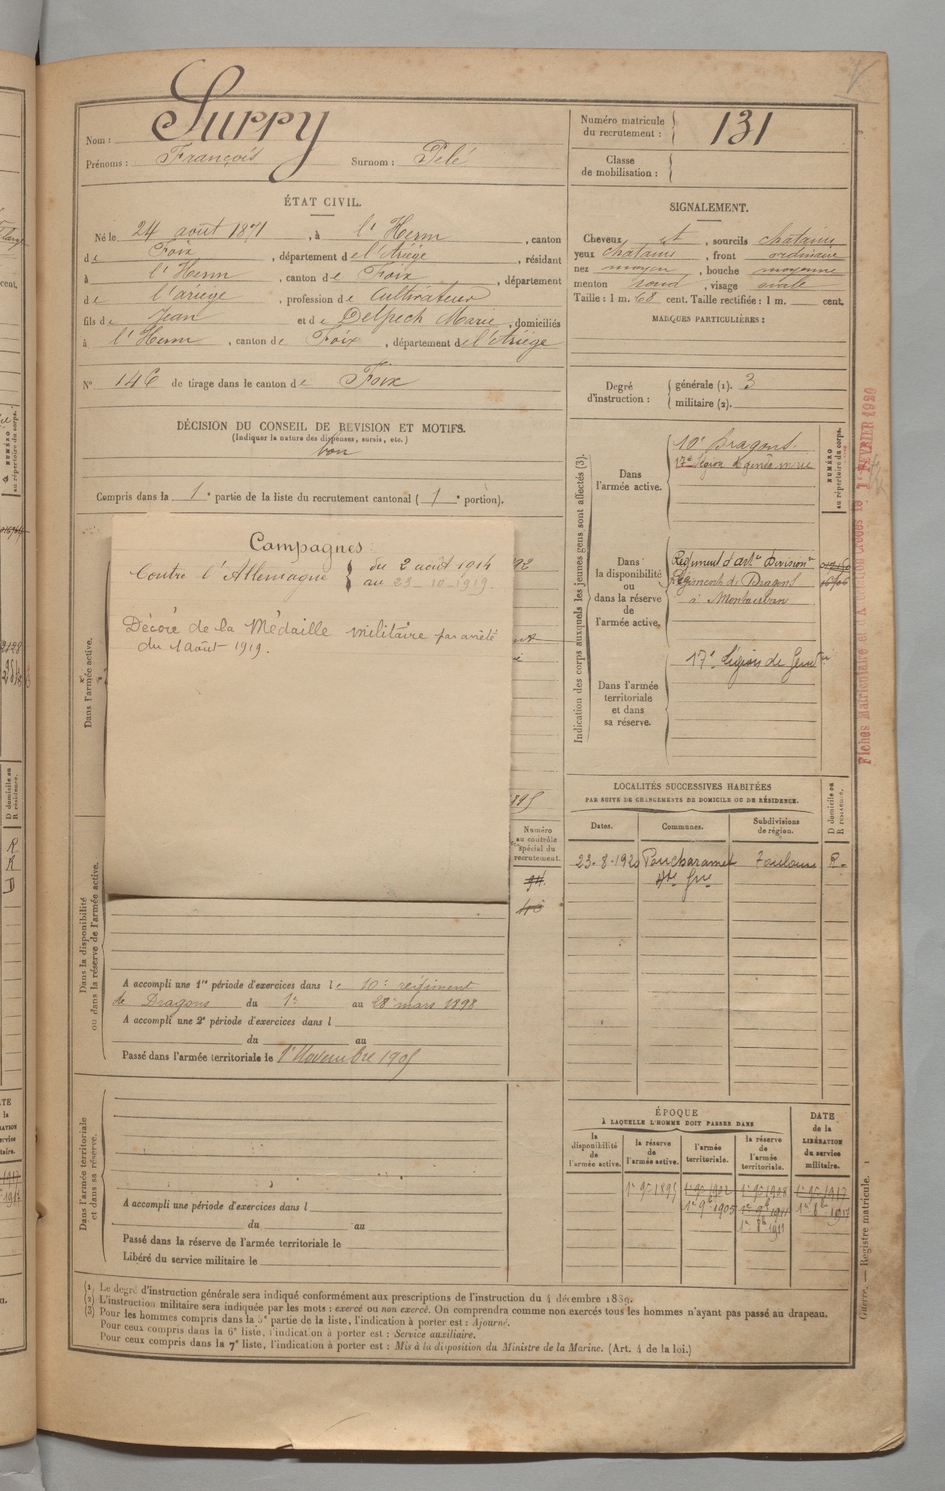 Nom : Surpy
Prénoms : François Surnom : Pelé
Numéro matricule du recrutement : 131
Classe de mobilisation :
ÉTAT CIVIL.
Né le 24 août 1871, à l'Herm, canton
de Foix, département de l'Ariège, résidant
à l'Herm, canton de Foix, département
de l'ariège, profession de Cultivateur
fils de Jean et de Delpech Marie, domiciliés
à l'Herm, canton de Foix, département de l'Ariège
N° 146 de tirage dans le canton de Foix
DÉCISION DU CONSEIL DE REVISION ET MOTIFS.
(Indiquer la nature des dispenses, sursis, etc.)
bon
Compris dans la 1e partie de la liste du recrutement cantonal (1e portion).
SIGNALEMENT.
Cheveux et, sourcils chatains
yeux chatains, front ordinaire
nez moyen, bouche moyenne
menton rond, visage ovale
Taille : 1 m. 68 cent. Taille rectifiée : 1 m. cent.
MARQUES PARTICULIÈRES :
Degré d'instruction :
générale (1). 3
militaire (2).
Indication des corps auxquels les jeunes gens sont affectés (3).
NUMÉRO au répertoire du corps.
Dans l'armée active.
10e Dragons.
17e Légion de gendie
Dans la disponibilité ou dans la réserve de l'armée active.
Régiment d'artie Divisionre
Régiment de Dragons
à Montauban
Dans l'armée territoriale et dans sa réserve.
17e Légion de Gendrie
Fiches Matriculaire et d'A
FÉVRIER 1920
Dans l'armée active.
Campagnes :
Contre l'Allemagne du 2 août 1914
au 23-10-1919.
Décoré de la Médaille militaire par arrêté
du 1 août 1919.
Numéro au contrôle spécial du recrutement.
LOCALITÉS SUCCESSIVES HABITÉES
PAR SUITE DE CHANGEMENTS DE DOMICILE OU DE RÉSIDENCE.
Dates. Communes. Subdivisions de région. D domicile ou R résidence.
23-8-1920 Poucharamet Toulouse R.
Hte Gne
Dans la disponibilité ou dans la réserve de l'armée active.
A accompli une 1re période d'exercices dans le 10e régiment
de Dragons du 1er au 28 mars 1898
A accompli une 2e période d'exercices dans l
du au
Passé dans l'armée territoriale le 1er Novembre 1905
Dans l'armée territoriale et dans sa réserve.
A accompli une période d'exercices dans l
du au
Passé dans la réserve de l'armée territoriale le
Libéré du service militaire le
ÉPOQUE
À LAQUELLE L'HOMME DOIT PASSER DANS
la disponibilité de l'armée active. la réserve de l'armée active. l'armée territoriale. la réserve de l'armée territoriale. DATE de la LIBÉRATION du service militaire.
1er 9bre 1895
(1) Le degré d'instruction générale sera indiqué conformément aux prescriptions de l'instruction du 4 décembre 1889.
(2) L'instruction militaire sera indiquée par les mots : exercé ou non exercé. On comprendra comme non exercés tous les hommes n'ayant pas passé au drapeau.
(3) Pour les hommes compris dans la 5e partie de la liste, l'indication à porter est : Ajourné.
Pour ceux compris dans la 6e liste, l'indication à porter est : Service auxiliaire.
Pour ceux compris dans la 7e liste, l'indication à porter est : Mis à la disposition du Ministre de la Marine. (Art. 4 de la loi.)
Guerre. — Registre matricule.